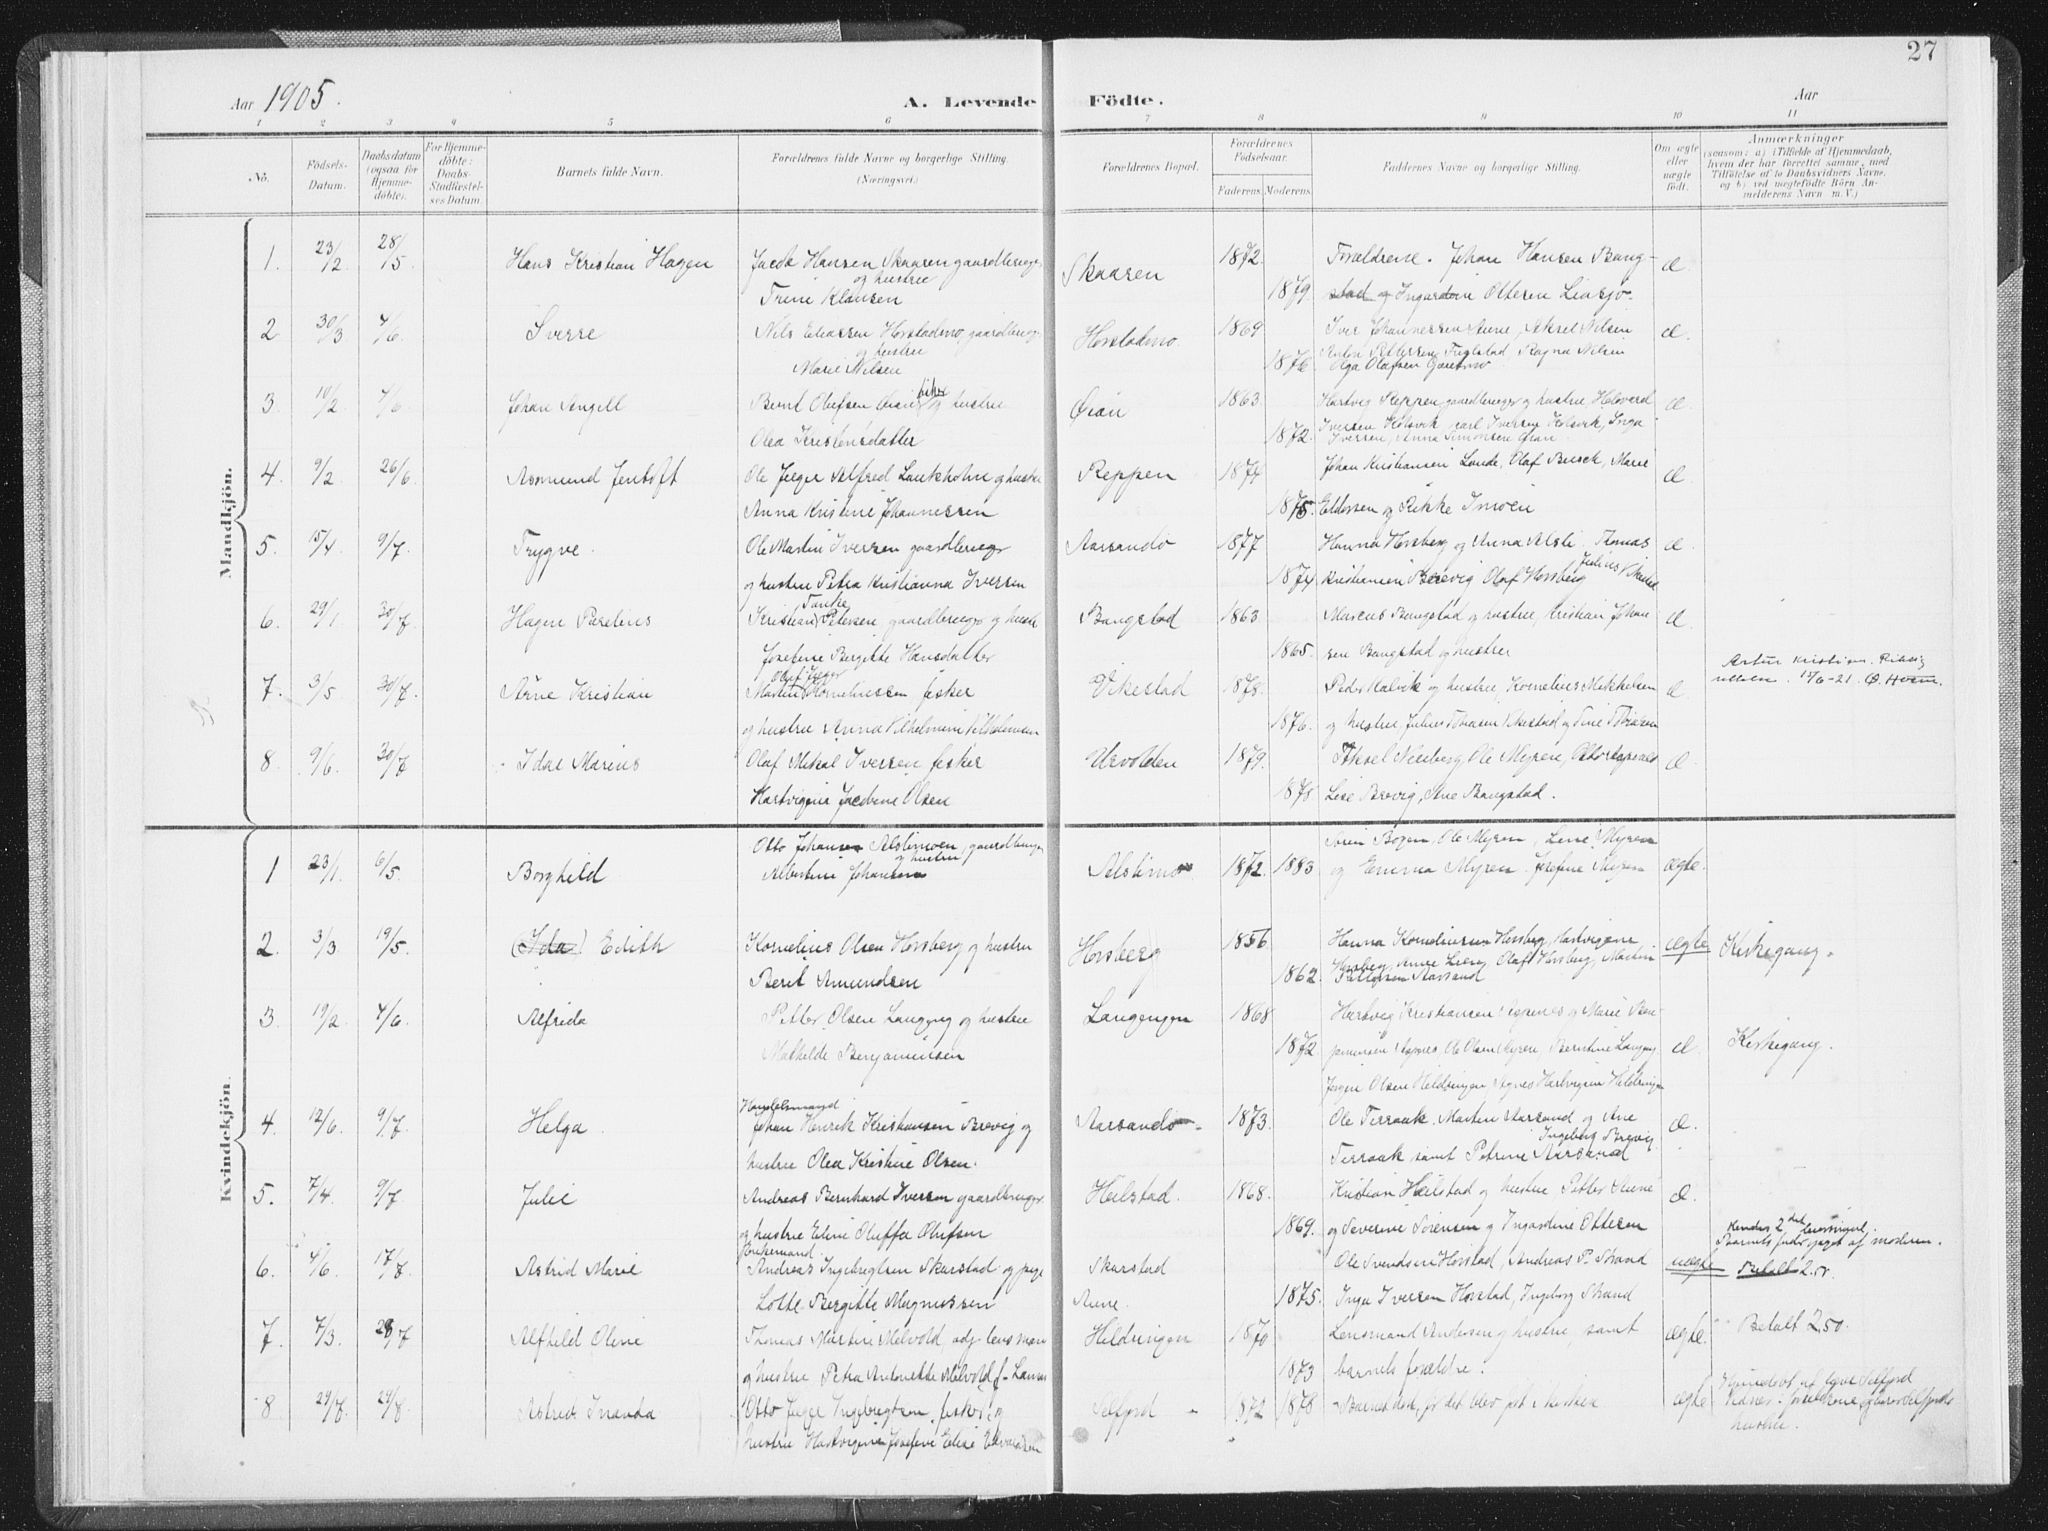 27
Aar 1905.
A. Levende Födte.
Aar
1 2 3 4 5 6 7 8 9 10 11
No.
Födsels-Datum.
Daabsdatum (ogsaa for Hjemmedöbte).
For Hjemmedöbte: Daabs-Stadfæstelses Datum.
Barnets fulde Navn.
Forældrenes fulde Navne og borgerlige Stilling.
(Næringsvei.)
Forældrenes Bopæl.
Forældrenes Födselsaar.
Faderens. Moderens.
Faddernes Navne og borgerlige Stilling.
Om ægte eller uægte födt.
Anmærkninger
(saasom: a) i Tilfælde af Hjemmedaab, hvem der har forrettet samme, med Tilföielse af to Daabsvidners Navne, og b) ved uægtefödte Börn Anmelderens Navn m.V.)
Mandkjön.
1. 23/2 28/5 Hans Kristian Hagen
Jacob Hansen Skaaren gaardbruger og hustru
Trine Klausen
Skaaren 1872. 1879.
Forældrene. Johan Hansen Bang-
stad og Ingardine Ottesen Liasjö. æ
2 30/3 4/6. Sverre
Nils Eliassen Horstadmo, gaardbrug. og hustru
Marie Nilsen
Horstadmo. 1869 1876.
Iver Johannessen Aune, Aksel Nilsen
Anton Pettersen Fuglstad, Ragna Nilsen
Olga Olafsen Gaasmo. æ.
3. 10/2 4/6 Johan Angell
Bernt Olufsen Öian fisker og hustru
Olea Kristensdatter
Öian 1863. 1872.
Hartvig Reppen gaardbruger og hustru, Halvard
Iversen Kolsvik, Carl Iversen Kolsvik, Inga
Iversen, Anna Simonsen Öian. æ.
4. 9/2 26/6 Asmund Jentoft
Ole Jeger Alfred Laukholm og hustru
Anna Kristine Johannessen
Reppen 1874 1875.
Johan Kristiansen Lande, Olaf Busch, Marie
Eldorsen og Rikke Imoen æ
5. 15/4 9/7. Trygve.
Ole Martin Iversen gaardbruger
og hustru Petra Kristianna Iversen
Aarsandö 1877 1874
Hanna Horsberg og Anna Alsli. Jonas
Kristiansen Brevig Olaf Horsberg æ
6. 29/1. 30/7. Hagen Paselius
Kristian Tanke Petersen, gaardbruger og hustru
Josefine Bergitte Hansdatter
Bangstad 1863 1865.
Marius Bangstad og hustru, Kristian Johan
sen Bangstad og hustru æ.
7. 3/5 30/7. Arne Kristian
Olaf Jeger
Martin Kornelius­sen fisker
og hustru Anna Vilhelmine Vilhelmsen
Vikestad 1878. 1876.
Peder Kalvik og hustru, Kornelius Mikkelsen
og hustru, Julius Tobiasen Vikestad og Tine Tobiasen æ
Artur Kristian.
15/6-21.
8 9/6. 30/7 Idar Marius
Olaf Mikal Iversen fisker
Hartvigine Jacobine Olsen
Urvolden 1879. 1878
Aksel Nieberg, Ole Myren, Otto Aspenes
Lise Brevig, Ane Bangstad. æ
Kvindekjön.
1 23/1. 6/5. Borghild
Otto Johansen Alslimoen, gaardbruger og hustru
Albertine Johansen
Alslimo 1872. 1883
Sören Bogen, Ole Myren, Lene Myren
og Emma Myren. Josefine Myren ægte.
2. 3/3. 19/5. (Ida) Edith
Kornelius Olsen Horsberg og hustru
Berit Amundsen
Horsberg 1856 1862.
Hanna Korneliussen Horsberg, Hartvigine
Horsberg, Anne Lien, Olaf Horsberg, Martin
Pettersen Aarsand ægte Kirkegang.
3. 19/2. 4/6 Alfrida
Petter Olsen Langeng og hustru
Mathilde Benjaminsen
Langengen 1868 1872.
Hartvig Kristiansen Aspenes og Marie Ben-
jaminsen Aspnes, Ole Olsen Myren, Berntine Langeng.
Jörgen Olsen Heldringen, Agnes Hartvigsen Heldringen æ Kirkegang.
4. 12/6. 9/7. Helga.
Handelsmand
Johan Henrik Kristiansen Brevig og
hustru Olea Kristine Olsen.
Aarsandö. 1873.
Ole Terraak, Martin Aarsand og Ane
Ingeborg Brevig.
Terraak samt Petrine Aarsand æ.
5. 7/4. 9/7 Julie
Andreas Bernhard Iversen gaardbruger
og hustru Eline Oluffa Olufsen
Heilstad. 1868. 1869.
Kristian Heilstad og hustru, Petter Aune
og Severine Sörensen og Ingardine Ottesen æ.
6. 4/6. 17/8. Astrid Marie
Andreas Ingebregtsen Skarstad og pige
Lotte Bergitte Magnussen
Skarstad
Aune. 1875.
Ole Svendsen Horstad, Andreas P. Strand
Inga Iversen Horstad, Ingeborg Strand uægte
Hendes 2det leiermaal.
Barnets fader opgit af moderen.
Betalt 2.00
7. 7/3. 28/7 Alfhild Oline
Thomas Martin Melvold, adj. lensman
og hustru Petra Antonette Melvold f. Launs
Heldringen 1870 1873
Lensmand Andersen og hustru, samt
barnets forældre. ægte. Betalt 2.50.
8 29/7. 29/8. Astrid Inanda
Otto Jeger Ingebregtsen, fisker, og
hustru Hartvigine Josefine Elise Edvardsen
Selfjord 1872 1878
Barnet döde, för det blev fört i kirken ægte.